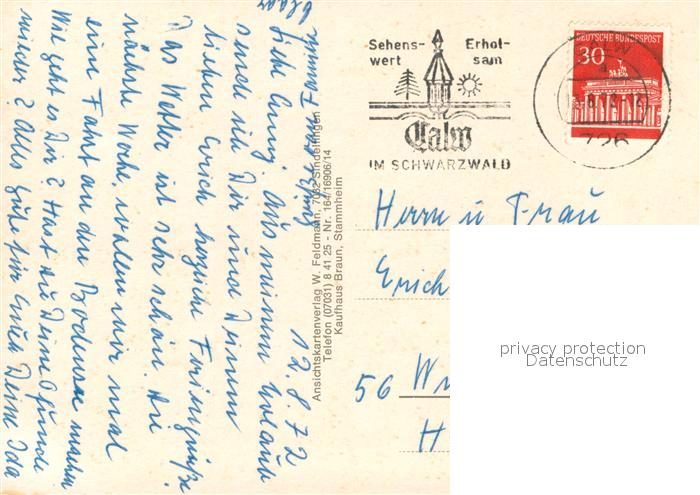 12.8.72
Aus meinem Urlaub
sende ich Dir und Deinem
lieben Erich herzliche Feriengrüße
Das Wetter ist sehr schön. Die
nächste Woche wollen wir mal
eine Fahrt an den Bodensee machen
Wie geht es Dir? Hast Du Deine Freunde
wieder? Alles gute für Euch Deine Ida
Ansichtskartenverlag W. Feldmann, 7032 Sindelfingen
Telefon (07031) 8 41 25 - Nr. 164/16906/14
Kaufhaus Braun, Stammheim
Sehens- Erhol-
wert sam
Calw
IM SCHWARZWALD
DEUTSCHE BUNDESPOST
30
726
Herrn u Frau
Erich
56
H
privacy protection
Datenschutz